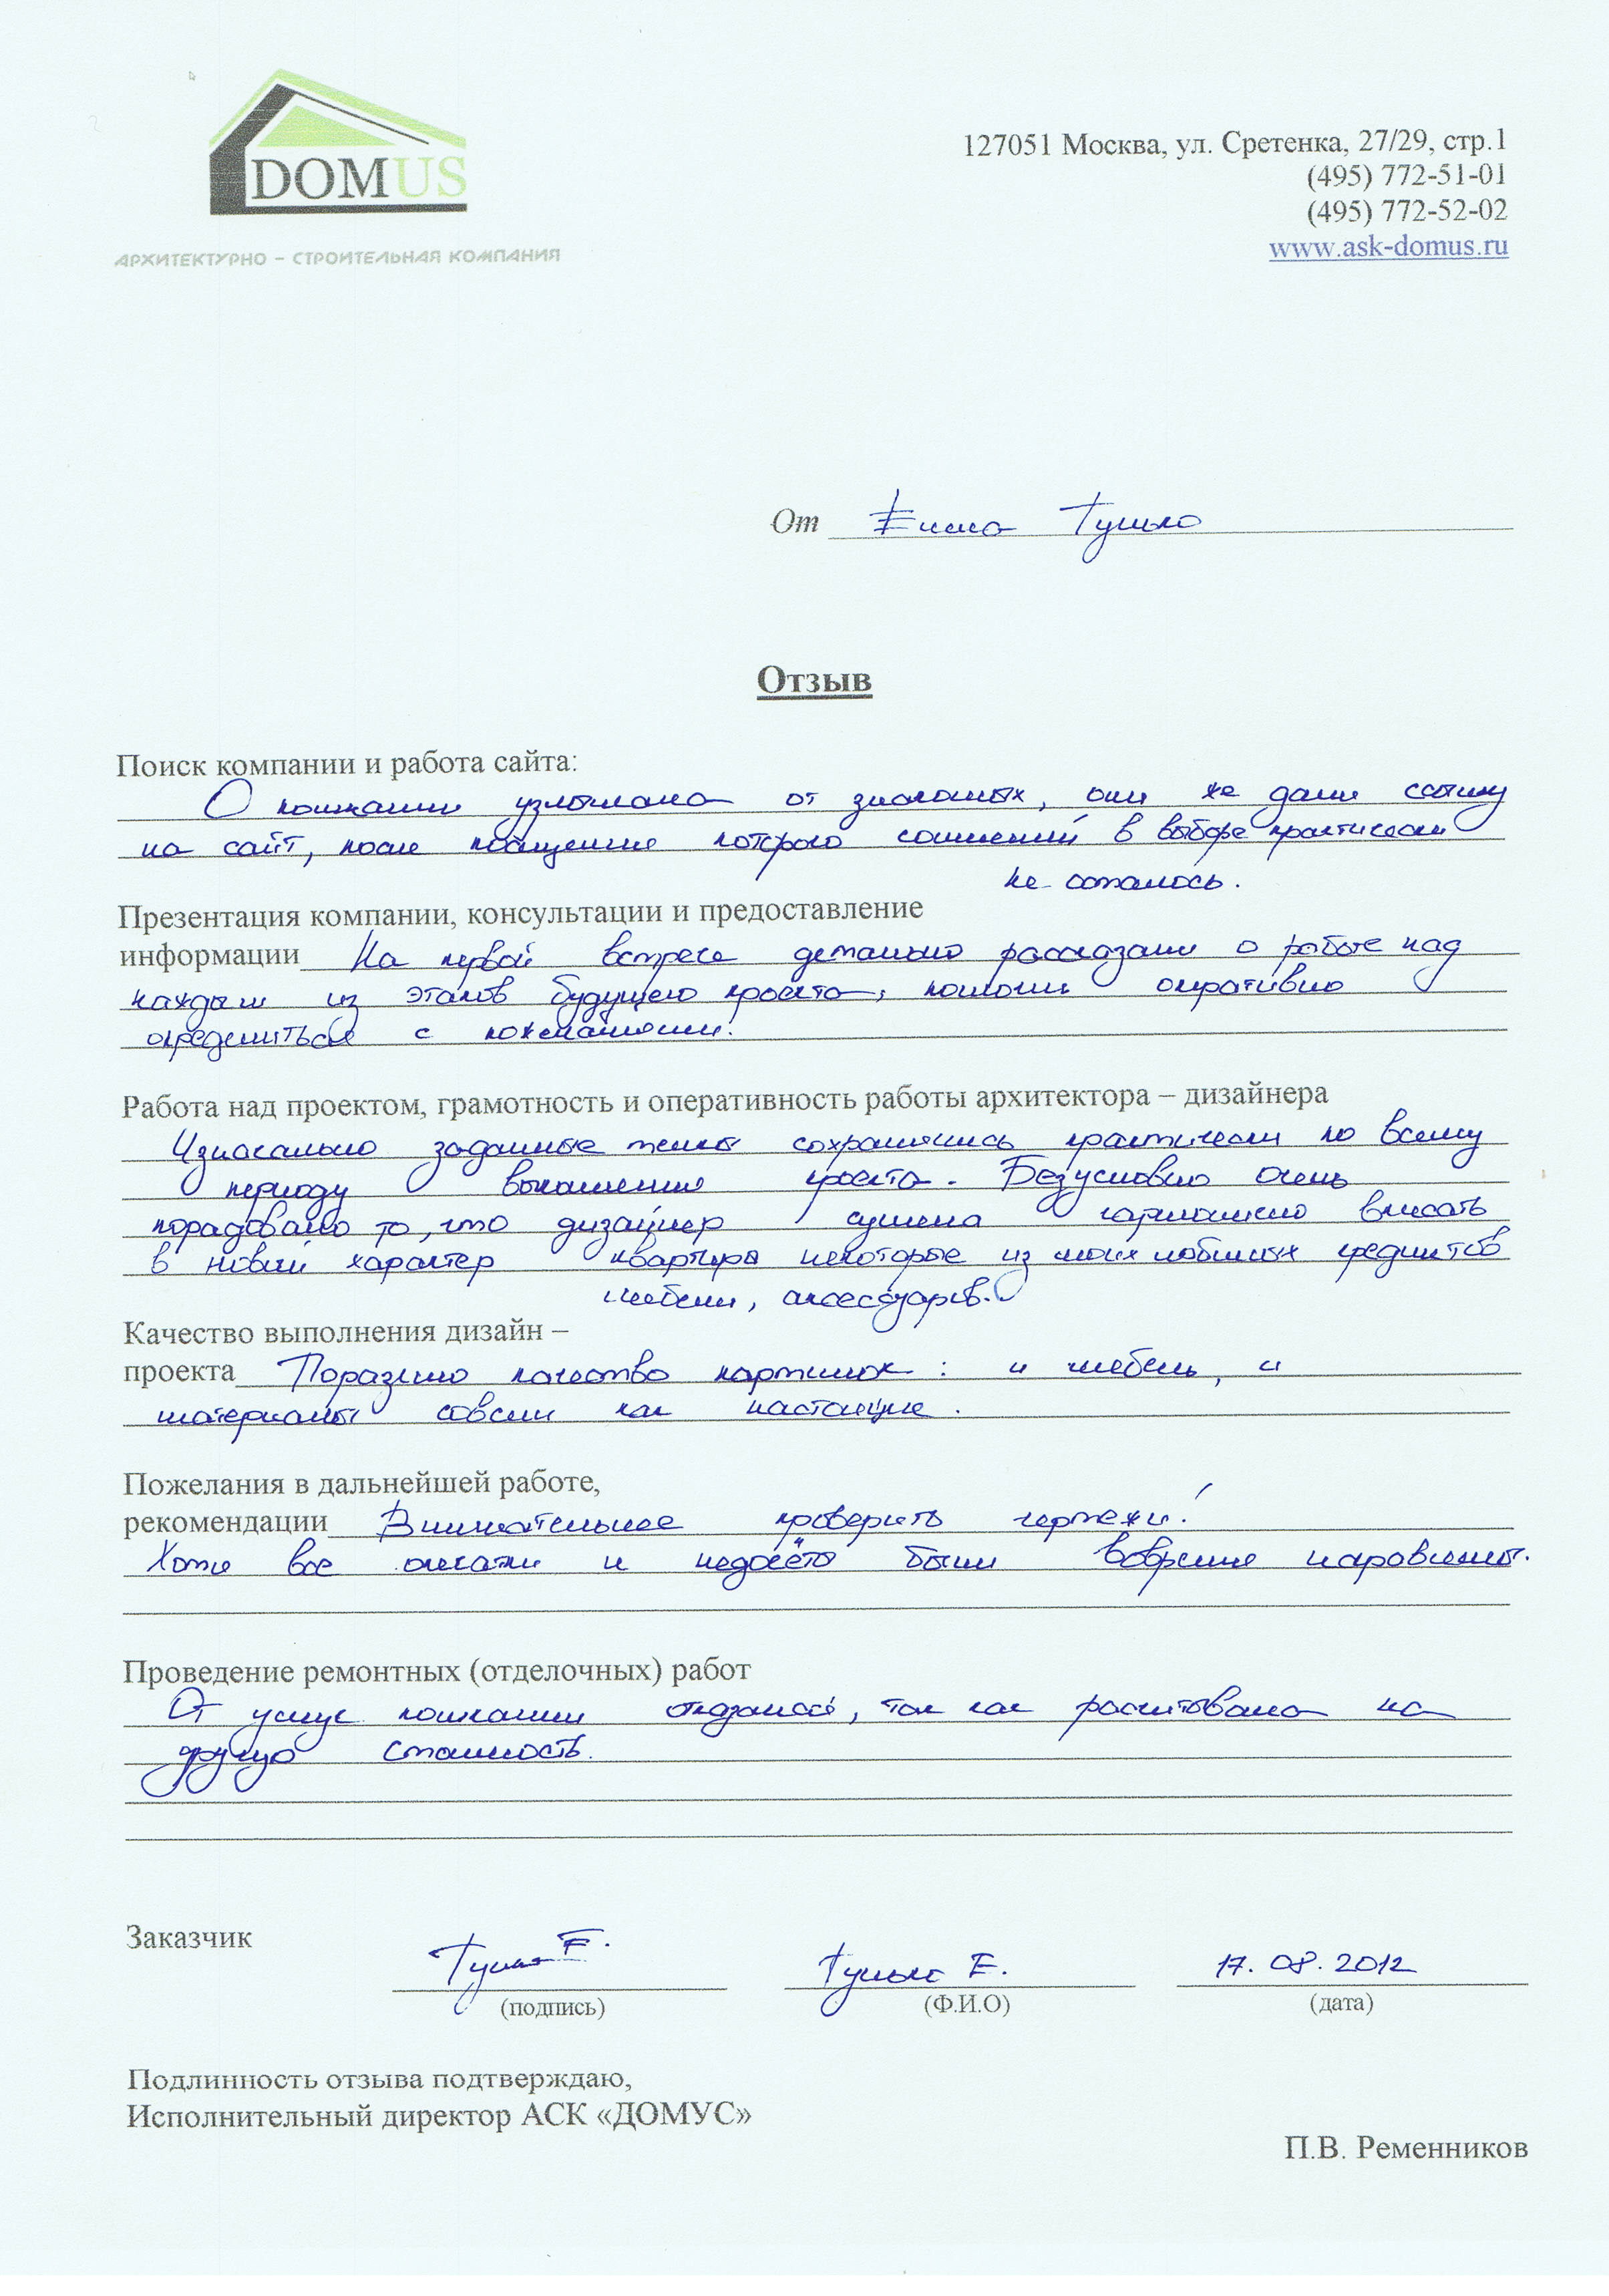 DOMUS
АРХИТЕКТУРНО – СТРОИТЕЛЬНАЯ КОМПАНИЯ
127051 Москва, ул. Сретенка, 27/29, стр.1
(495) 772-51-01
(495) 772-52-02
www.ask-domus.ru
От
Отзыв
Поиск компании и работа сайта:
О компании узнала от знакомых, они же дали ссылку
на сайт, после посещения которого сомнений в выборе практически
не осталось.
Презентация компании, консультации и предоставление
информации На первой встрече детально рассказали о работе над
каждым из этапов будущего проекта, помогли оперативно
определиться с пожеланиями.
Работа над проектом, грамотность и оперативность работы архитектора – дизайнера
Изначально заданные темпы сохранялись практически по всему
периоду выполнения проекта. Безусловно очень
порадовало то, что дизайнер сумела гармонично вписать
в новый характер квартиры некоторые из моих любимых предметов
мебели, аксессуаров.
Качество выполнения дизайн –
проекта Поразило качество картинок: и мебель, и
материалы совсем как настоящие.
Пожелания в дальнейшей работе,
рекомендации Внимательнее проверять чертежи!
Хотя все опечатки и недочёты были вовремя исправлены.
Проведение ремонтных (отделочных) работ
От услуг компании отказалась, так как расчитывала на
другую стоимость.
Заказчик
17.08.2012
(подпись) (Ф.И.О) (дата)
Подлинность отзыва подтверждаю,
Исполнительный директор АСК «ДОМУС»
П.В. Ременников